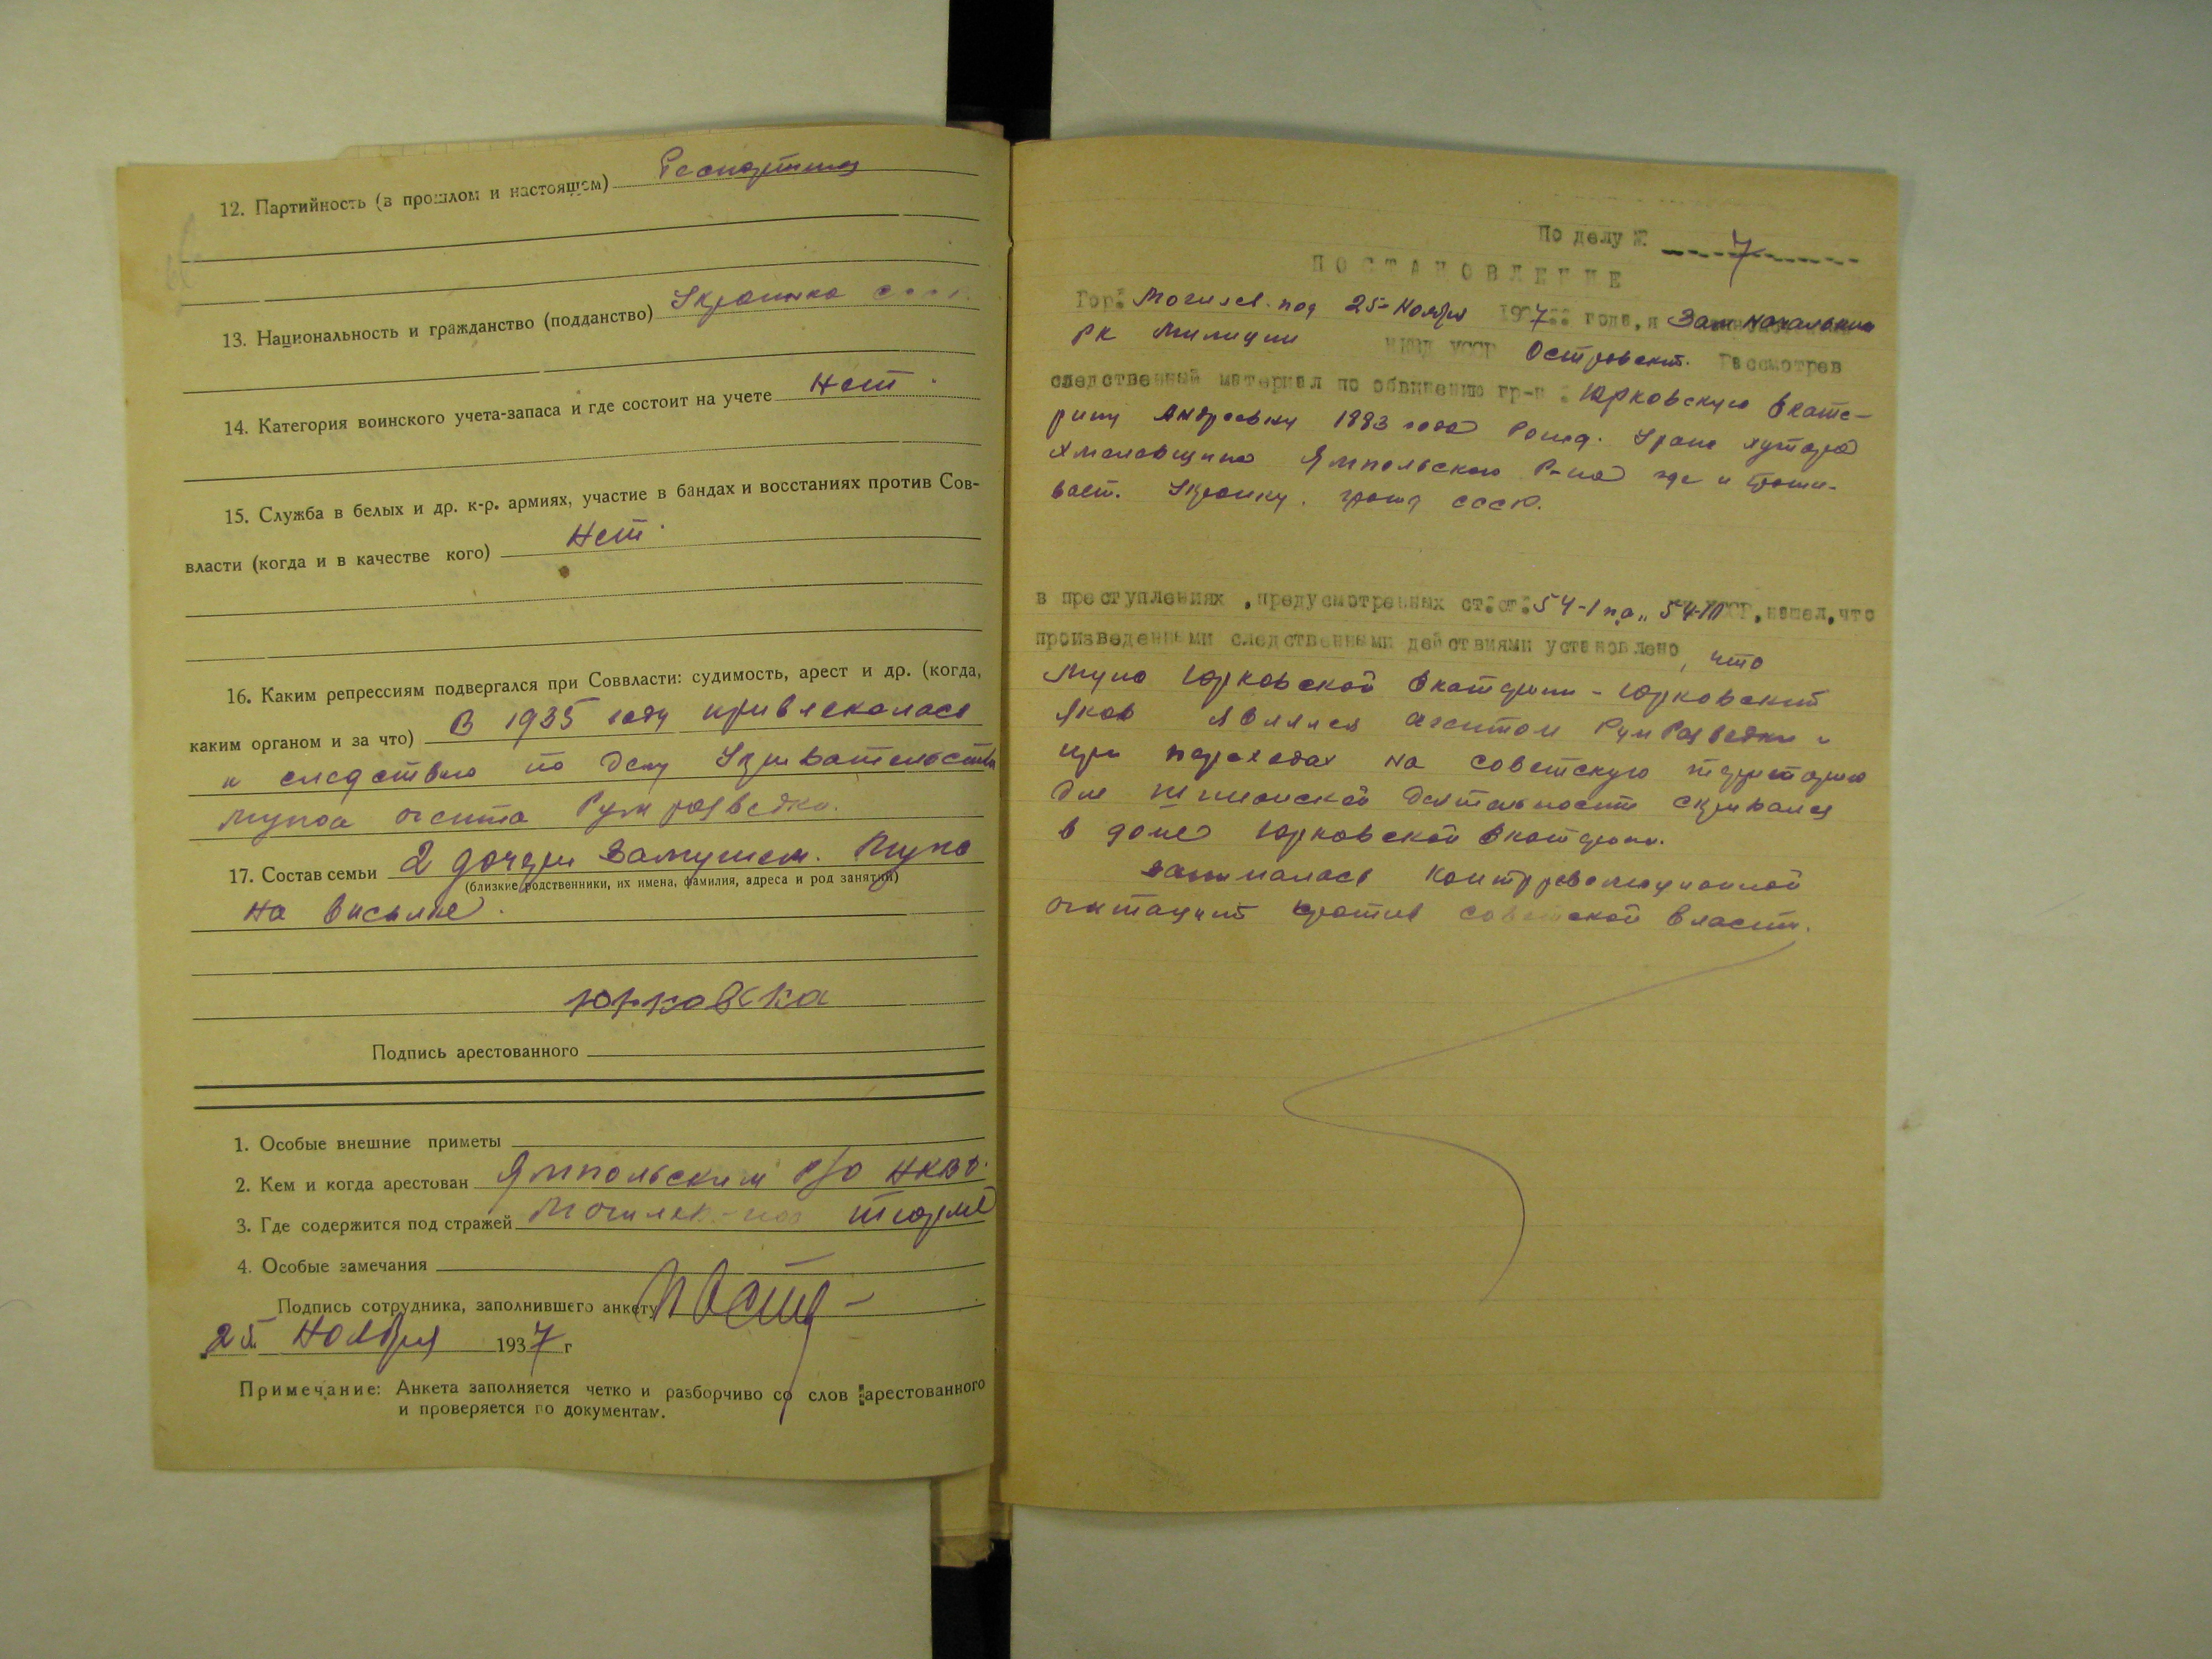 12. Партийность (в прошлом и настоящем) Беспартийная
13. Национальность и гражданство (подданство) Украинка ссср
14. Категория воинского учета-запаса и где состоит на учете Нет.
15. Служба в белых и др. к-р. армиях, участие в бандах и восстаниях против Сов-
власти (когда и в качестве кого) Нет.
16. Каким репрессиям подвергался при Соввласти: судимость, арест и др. (когда,
каким органом и за что) В 1935 году привлекалась
к следствию по делу Укривательства
мужа агента Рум разведки.
17. Состав семьи 2 дочери замужем. Мужа
(близкие родственники, их имена, фамилия, адреса и род занятий)
на висылке.
Юрковска
Подпись арестованного
1. Особые внешние приметы
2. Кем и когда арестован Ямпольским Р/О НКВД.
3. Где содержится под стражей Могилев-под тюрме
4. Особые замечания
Подпись сотрудника, заполнившего анкету
25 Ноября 1937 г
Примечание: Анкета заполняется четко и разборчиво со слов арестованного
и проверяется по документам.
По делу № 7
ПОСТАНОВЛЕНИЕ
Гор. Могилев-под 25 Ноября 1937 года, я Зам Начальника
РК Милиции НКВД УССР Островский. Рассмотрев
следственный материал по обвинению гр-н Юрковскую Екате-
рину Андреевну 1883 года рожд. Урож хутора
Хмелевщина Ямпольского Р-на где и прожи-
вает. Украинку. гражд СССР.
в преступлениях, предусмотренных ст.ст. 54-1 п „а" 54-10 УССР, нашел, что
произведенными следственными действиями установлено, что
Мужа Юрковской Екатерини - Юрковский
Яков являлся агентом РумРазведки и
при переходах на советскую территорию
для шпионской деятельности скривался
в доме Юрковской Екатерини.
занималась Контрреволюционной
агитацией против советской власти.